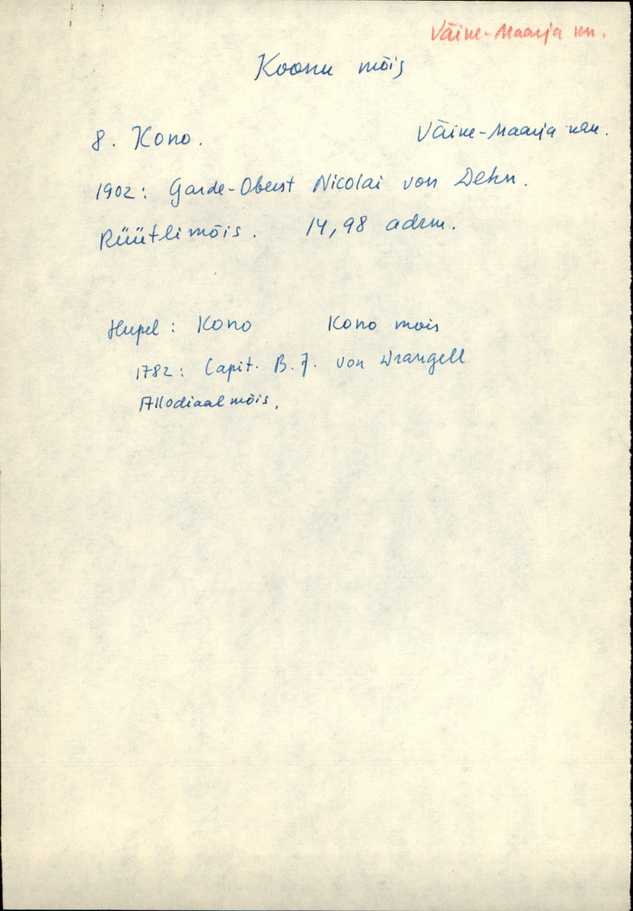 Väike-Maarja kn.
Koonu mõis
8. Kono. Väike-Maarja khk.
1902: Garde-Oberst Nicolai von Dehn.
Rüütlimõis. 14,98 adrm.
Hupel: Kono Kono mois
1782: Capit. B. J. von Wrangell
Allodiaalmõis.